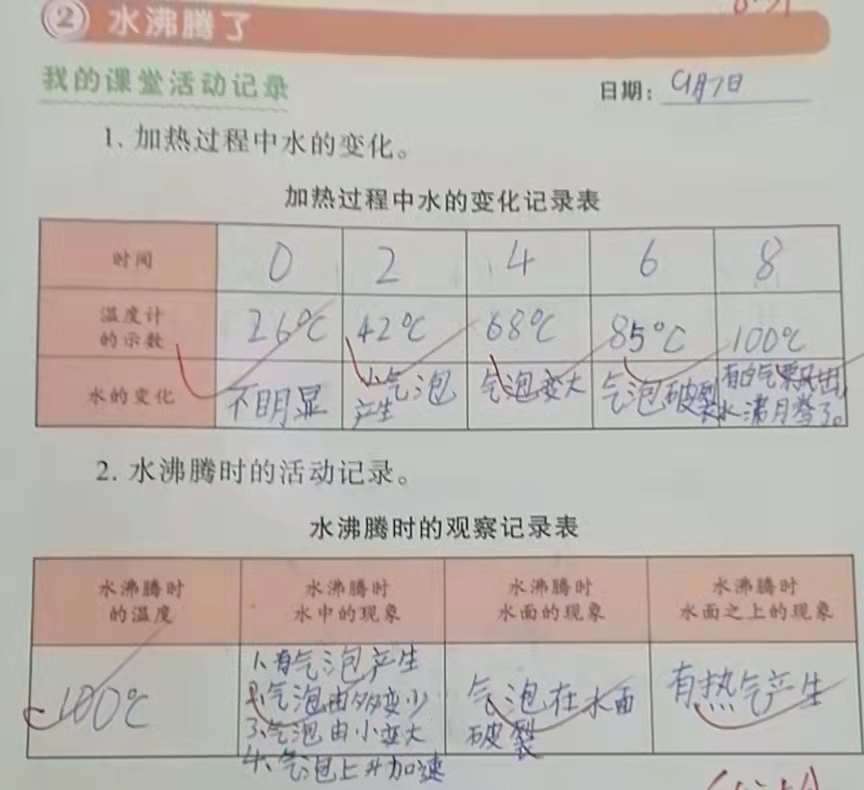 ② 水沸腾了
我的课堂活动记录
日期：9月7日
1. 加热过程中水的变化。
加热过程中水的变化记录表
时间 0 2 4 6 8
温度计的示数 26℃ 42℃ 68℃ 85℃ 100℃
水的变化 不明显 小气泡产生 气泡变大 气泡破裂 水沸腾了。
2. 水沸腾时的活动记录。
水沸腾时的观察记录表
水沸腾时的温度 水沸腾时水中的现象 水沸腾时水面的现象 水沸腾时水面之上的现象
100℃
1、有气泡产生
2、气泡由多变少
3、气泡由小变大
4、气泡上升加速
气泡在水面破裂
有热气产生